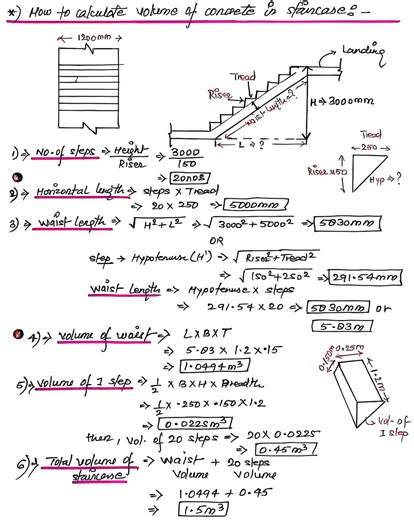 *) How to calculate volume of concrete in staircase:-
1200mm
Landing
Tread
Riser
waist length = ?
H = 3000mm
L = ?
Tread
250
Riser 150
Hyp = ?
1) No. of steps => Height/Riser => 3000/150
=> 20nos
2) Horizontal length => steps x Tread
=> 20 x 250 => 5000mm
3) Waist length => √H²+L² => √3000²+5000² => 5830mm
OR
step => Hypotenuse (H') => √Riser²+Tread²
=> √150²+250² => 291.54mm
Waist Length => Hypotenuse x steps
=> 291.54 x 20 => 5830mm or
5.83m
4) => volume of waist => LxBxT
=> 5.83 x 1.2 x .15
=> 1.0494m³
0.150m
0.25m
1.2m
Vol. of
1 step
5) => volume of 1 step => 1/2 x B x H x Breadth
=> 1/2 x .250 x .150 x 1.2
=> 0.0225m³
then, Vol. of 20 steps => 20 x 0.0225
=> 0.45m³
6) => Total volume of staircase => waist volume + 20 steps volume
=> 1.0494 + 0.45
=> 1.5m³